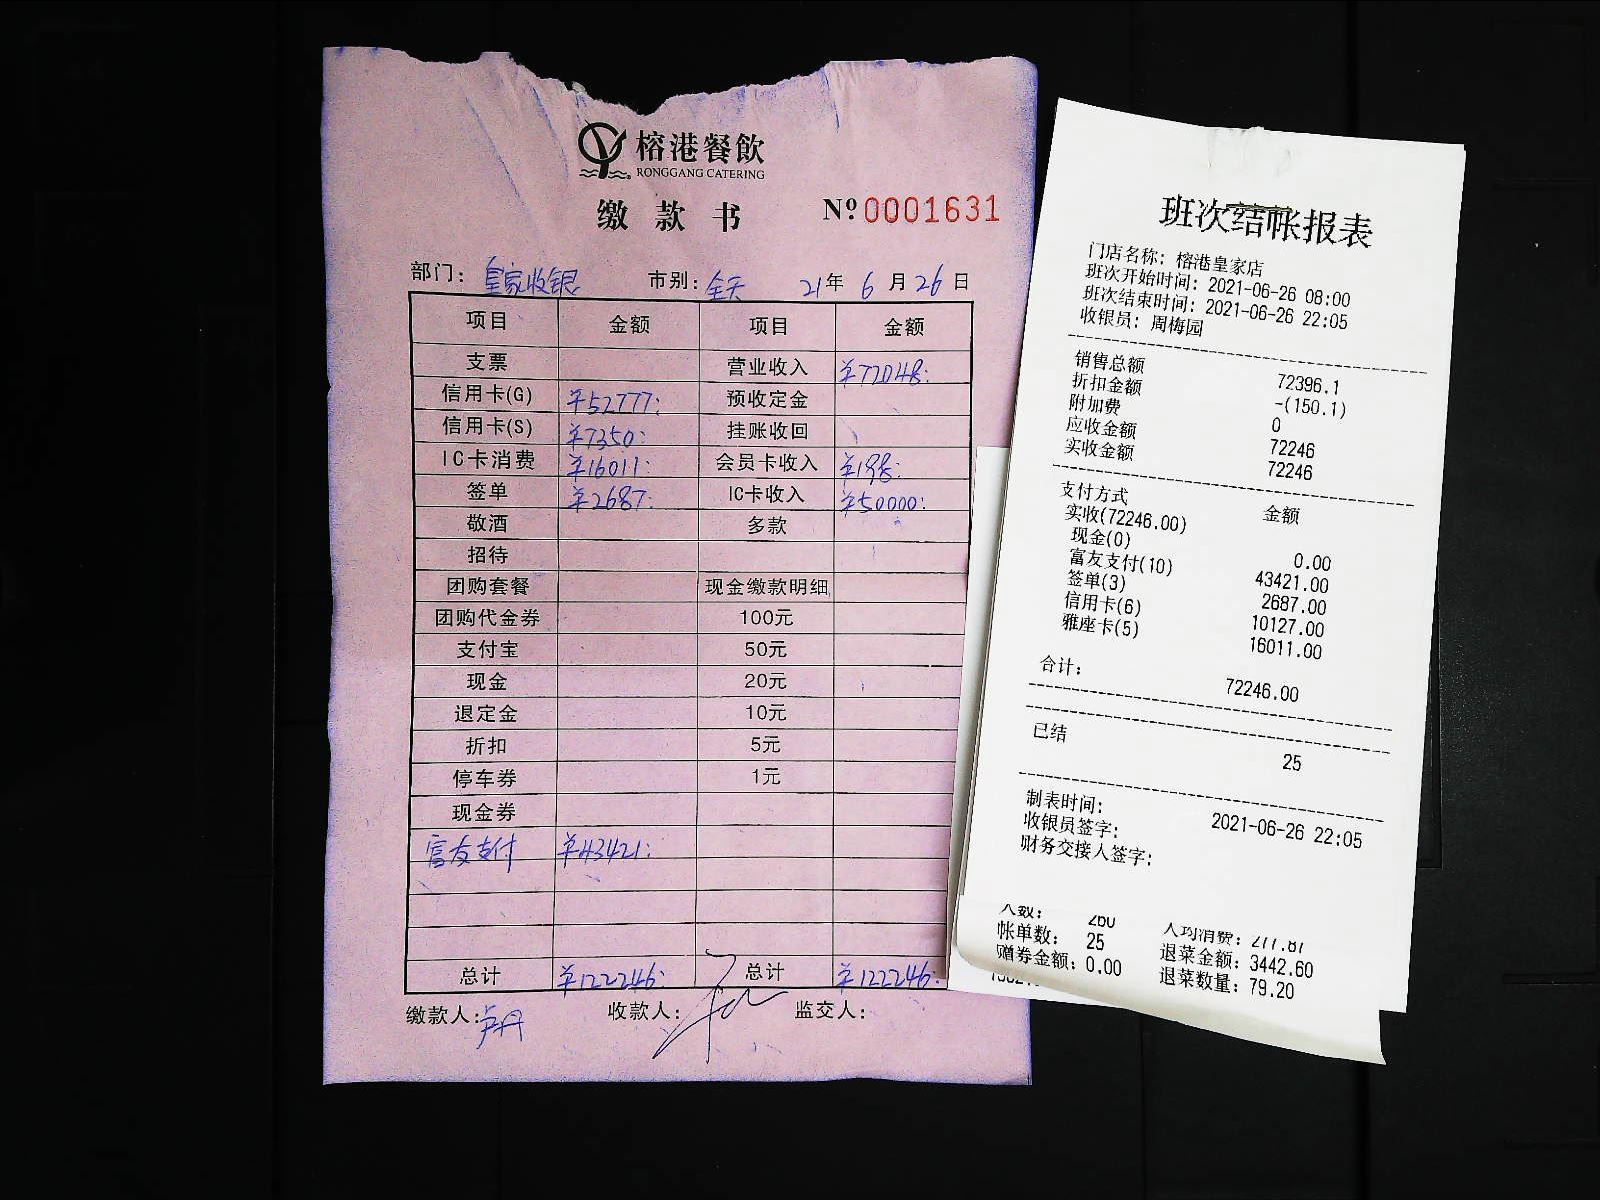 榕港餐飲
RONGGANG CATERING
缴款书 №0001631
部门：皇家收银 市别：全天 21年6月26日
项目 金额 项目 金额
支票 营业收入 ¥72048:
信用卡(G) ¥52777: 预收定金
信用卡(S) ¥7350: 挂账收回
IC卡消费 ¥16011: 会员卡收入 ¥198:
签单 ¥2687: IC卡收入 ¥50000:
敬酒 多款
招待
团购套餐 现金缴款明细
团购代金券 100元
支付宝 50元
现金 20元
退定金 10元
折扣 5元
停车券 1元
现金券
富友支付 ¥43421:
总计 ¥122246: 总计 ¥122246:
缴款人: 收款人: 监交人:
班次结帐报表
门店名称: 榕港皇家店
班次开始时间: 2021-06-26 08:00
班次结束时间: 2021-06-26 22:05
收银员: 周梅园
销售总额 72396.1
折扣金额 -(150.1)
附加费 0
应收金额 72246
实收金额 72246
支付方式 金额
实收(72246.00)
现金(0) 0.00
富友支付(10) 43421.00
签单(3) 2687.00
信用卡(6) 10127.00
雅座卡(5) 16011.00
合计: 72246.00
已结 25
制表时间: 2021-06-26 22:05
收银员签字:
财务交接人签字:
人数: 260 人均消费: 277.87
帐单数: 25 退菜金额: 3442.60
赠券金额: 0.00 退菜数量: 79.20